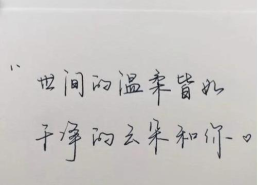 “世间的温柔皆如
干净的云朵和你。